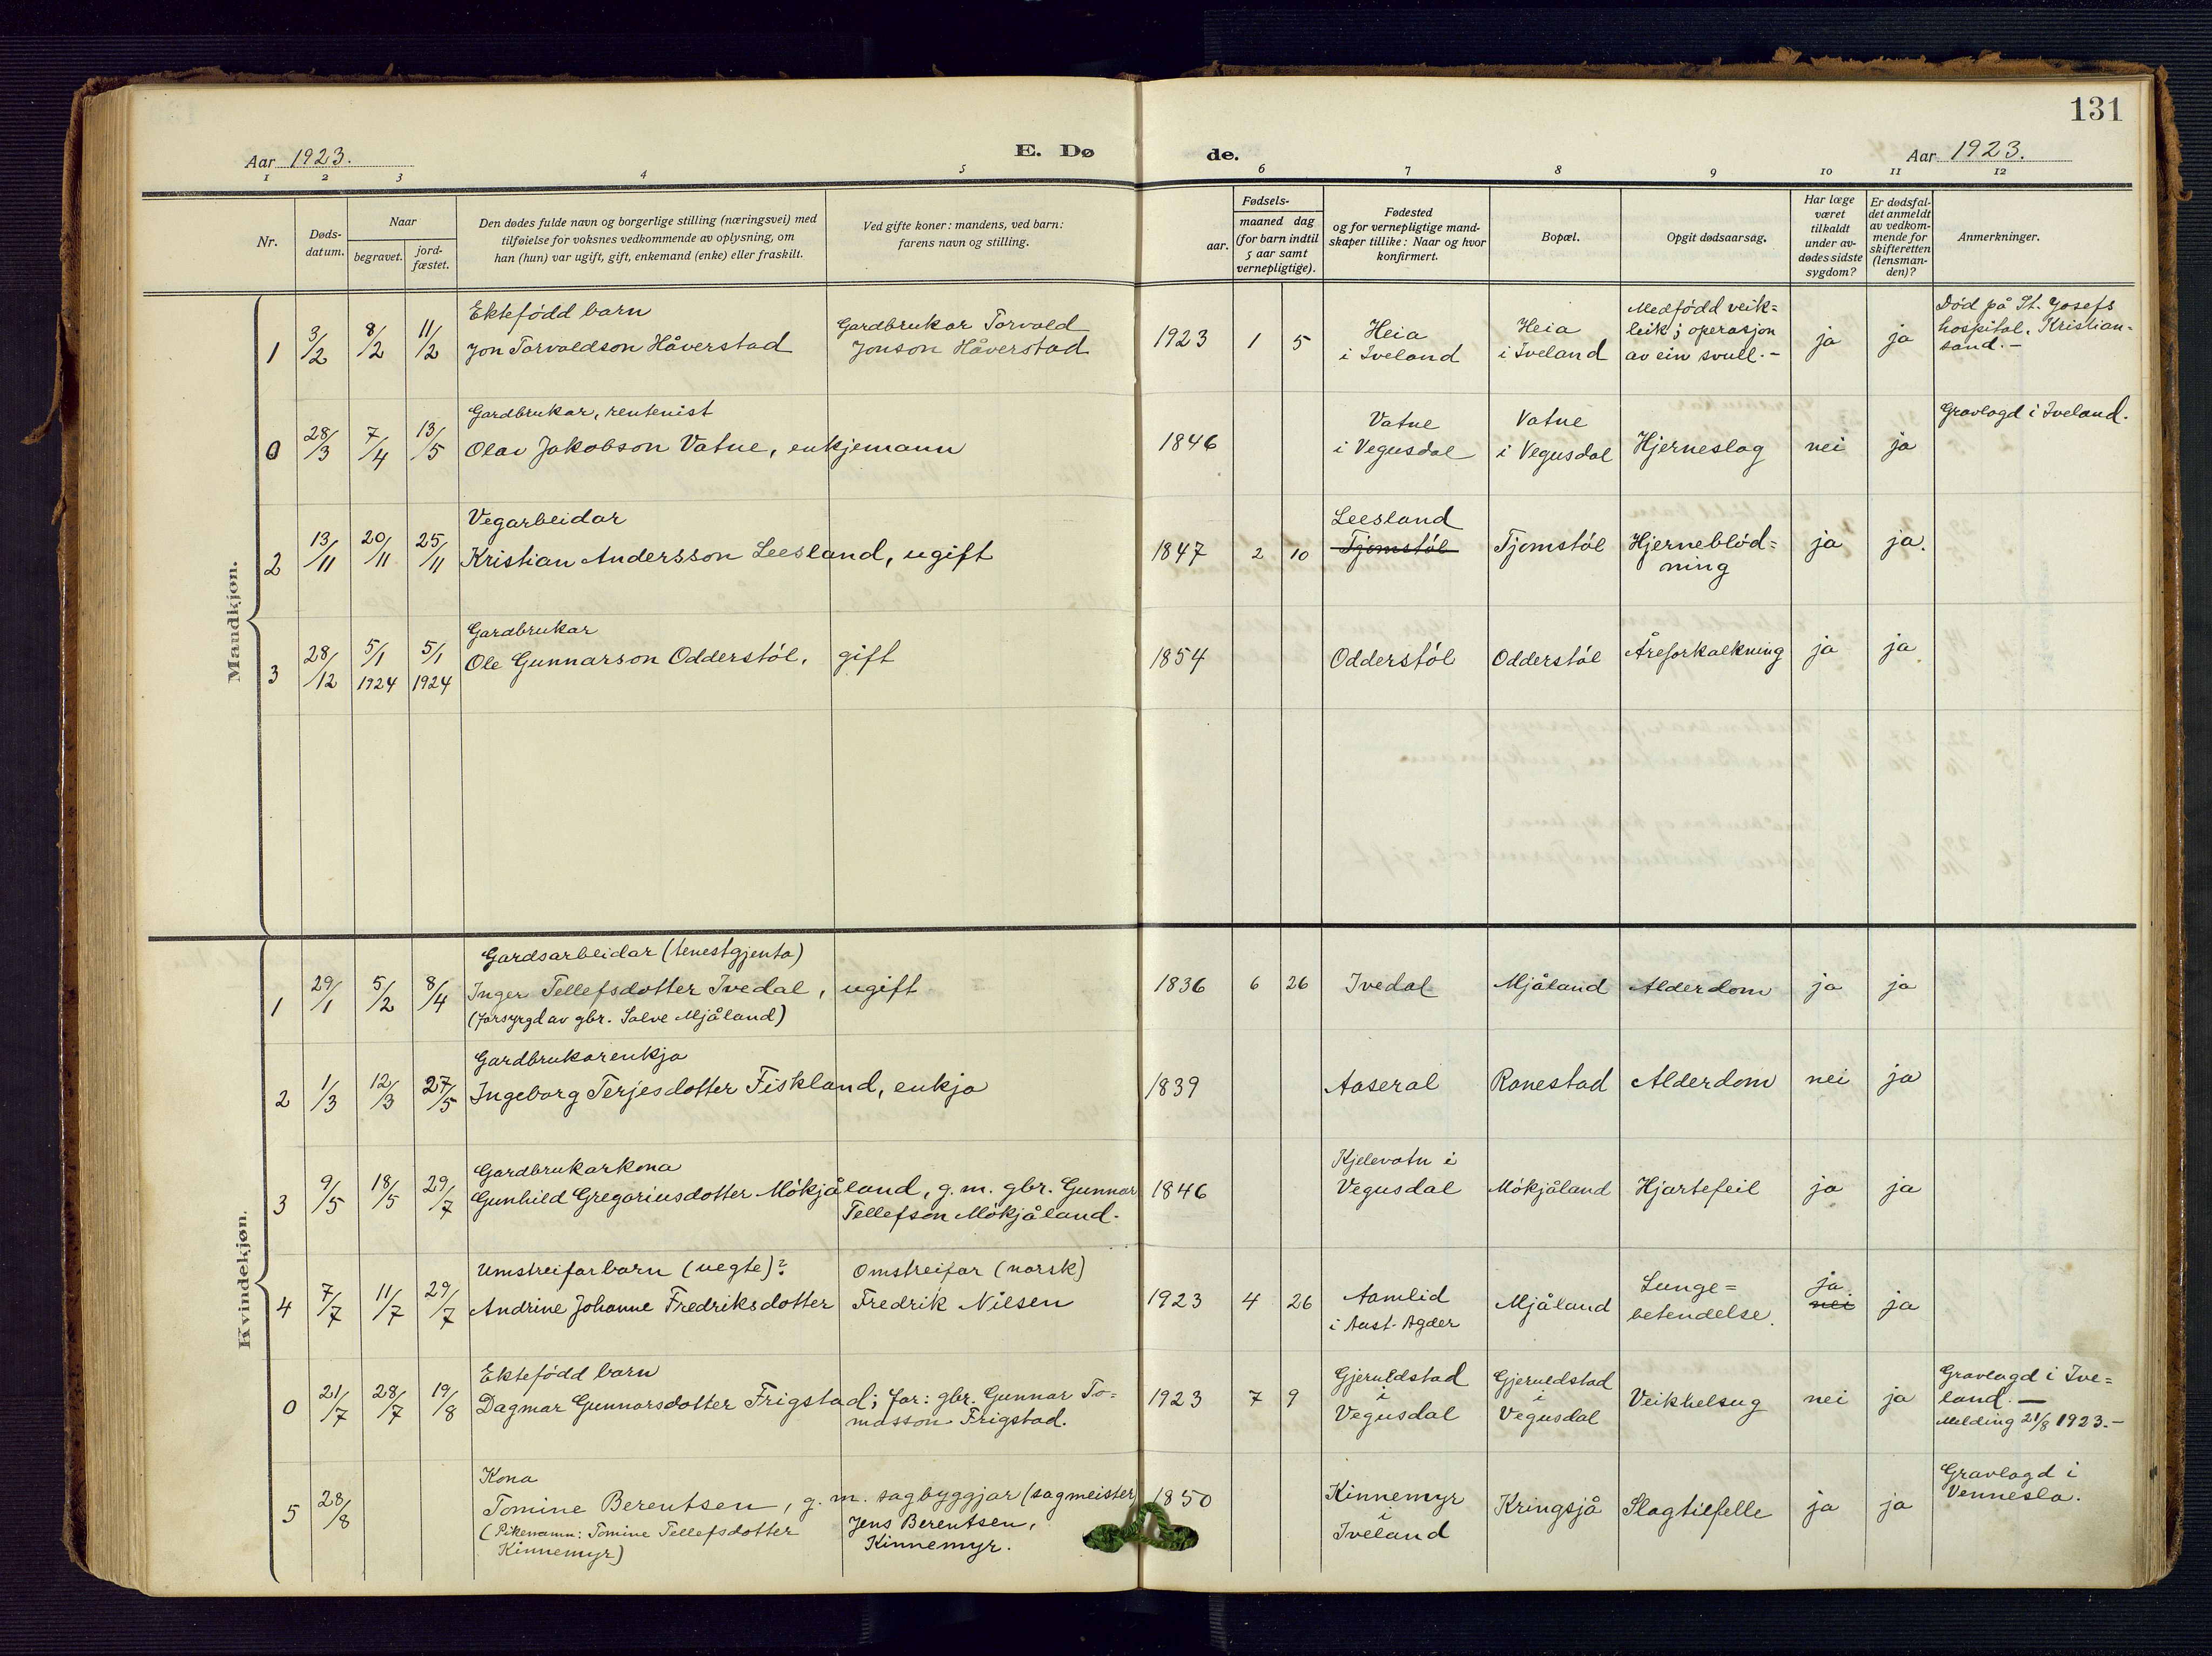 131
Aar 1923.
E. Dø
de.
Aar 1923.
1 2 3 4 5 6 7 8 9 10 11 12
Nr.
Døds-
datum.
Naar
begravet.
jord-
fæstet.
Den dødes fulde navn og borgerlige stilling (næringsvei) med
tilføielse for voksnes vedkommende av oplysning, om
han (hun) var ugift, gift, enkemand (enke) eller fraskilt.
Ved gifte koner: mandens, ved barn:
farens navn og stilling.
Fødsels-
aar.
maaned dag
(for barn indtil
5 aar samt
vernepligtige).
Fødested
og for vernepligtige mand-
skaper tillike: Naar og hvor
konfirmert.
Bopæl.
Opgit dødsaarsag.
Har læge
været
tilkaldt
under av-
dødes sidste
sygdom?
Er dødsfal-
det anmeldt
av vedkom-
mende for
skifteretten
(lensman-
den)?
Anmerkninger.
Mandkjøn.
1 3/2 8/2 11/2
Ektefødd barn
Jon Torvaldson Håverstad
Gardbrukar Torvald
Jonson Håverstad
1923 1 5
Heia
i Iveland
Heia
i Iveland
Medfødd veik-
leik; operasjon
av ein svull.-
ja ja
Død på St. Josefs
hospital, Kristian-
sand.-
0 28/3 7/4 13/5
Gardbrukar, rentenist
Olav Jakobson Vatne, enkjemann
1846
Vatne
i Vegusdal
Vatne
i Vegusdal
Hjerneslag
nei ja
Gravlagd i Iveland.
2 13/11 20/11 25/11
Vegarbeidar
Kristian Andersson Leesland, ugift
1847 2 10
Leesland
Tjomstøl
Tjomstøl
Hjerneblød=
ning
ja ja.
3 28/12 5/1 1924 5/1 1924
Gardbrukar
Ole Gunnarson Odderstøl, gift
1854
Odderstøl
Odderstøl
Åreforkalkning
ja ja
Kvindekjøn.
1 29/1 5/2 8/4
Gardsarbeidar (tenestgjenta)
Inger Tellefsdotter Ivedal, ugift
(forsyrgd av gbr. Salve Mjåland)
1836 6 26
Ivedal
Mjåland
Alderdom
ja ja
2 1/3 12/3 27/5
Gardbrukarenkja
Ingeborg Terjesdotter Fiskland, enkja
1839
Aaseral
Ronestad
Alderdom
nei ja
3 9/5 18/5 29/7
Gardbrukarkona
Gunhild Gregoriusdotter Møkjåland, g. m. gbr. Gunnar
Tellefson Møkjåland.
1846
Kjelevatn i
Vegusdal
Møkjåland
Hjartefeil
ja ja
4 7/7 11/7 29/7
Umstreifarbarn (uegte)?
Andrine Johanne Fredriksdotter
Omstreifar (norsk)
Fredrik Nilsen
1923 4 26
Aamlid
i Aust-Agder
Mjåland
Lunge=
betendelse.
ja
nei
ja
0 21/7 28/7 19/8
Ektefødd barn
Dagmar Gunnarsdotter Frigstad; far: gbr. Gunnar To=
masson Frigstad.
1923 7 9
Gjeruldstad
i
Vegusdal
Gjeruldstad
i
Vegusdal
Veikhelsug
nei ja
Gravlagd i Ive=
land.-
Melding 21/8 1923.-
5 28/8
Kona
Tomine Berentsen, g. m. sagbyggjar (sagmeister)
(Pikenamn: Tomine Tellefsdotter
Kinnemyr)
Jens Berentsen,
Kinnemyr.
1850
Kinnemyr
i
Iveland
Kringsjå
Slagtilfelle
ja ja
Gravlagd i
Vennesla.